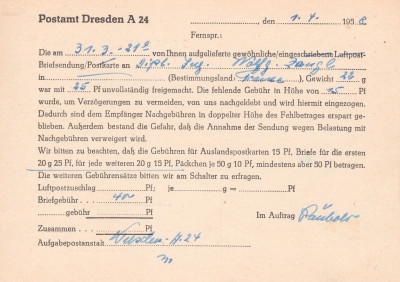 Postamt Dresden A 24
, den 1. 4. 195
Fernspr.:
Die am 31.3.-21⁰ von Ihnen aufgelieferte gewöhnliche/eingeschriebene Luftpost-
Briefsendung/Postkarte an Dipl. Ing. Wolfg. Zangl
in (Bestimmungsland), Gewicht 22 g
war mit 25 Pf unvollständig freigemacht. Die fehlende Gebühr in Höhe von 15 Pf
wurde, um Verzögerungen zu vermeiden, von uns nachgeklebt und wird hiermit eingezogen.
Dadurch sind dem Empfänger Nachgebühren in doppelter Höhe des Fehlbetrages erspart ge-
blieben. Außerdem bestand die Gefahr, daß die Annahme der Sendung wegen Belastung mit
Nachgebühren verweigert wird.
Wir bitten zu beachten, daß die Gebühren für Auslandspostkarten 15 Pf, Briefe für die ersten
20 g 25 Pf, für jede weiteren 20 g 15 Pf, Päckchen je 50 g 10 Pf, mindestens aber 50 Pf betragen.
Die weiteren Gebührensätze bitten wir am Schalter zu erfragen.
Luftpostzuschlag Pf; je g = Pf
Briefgebühr . . . 40 Pf
gebühr Pf
Im Auftrag
Zusammen . . . Pf
Aufgabepostanstalt Dresden-A. 24